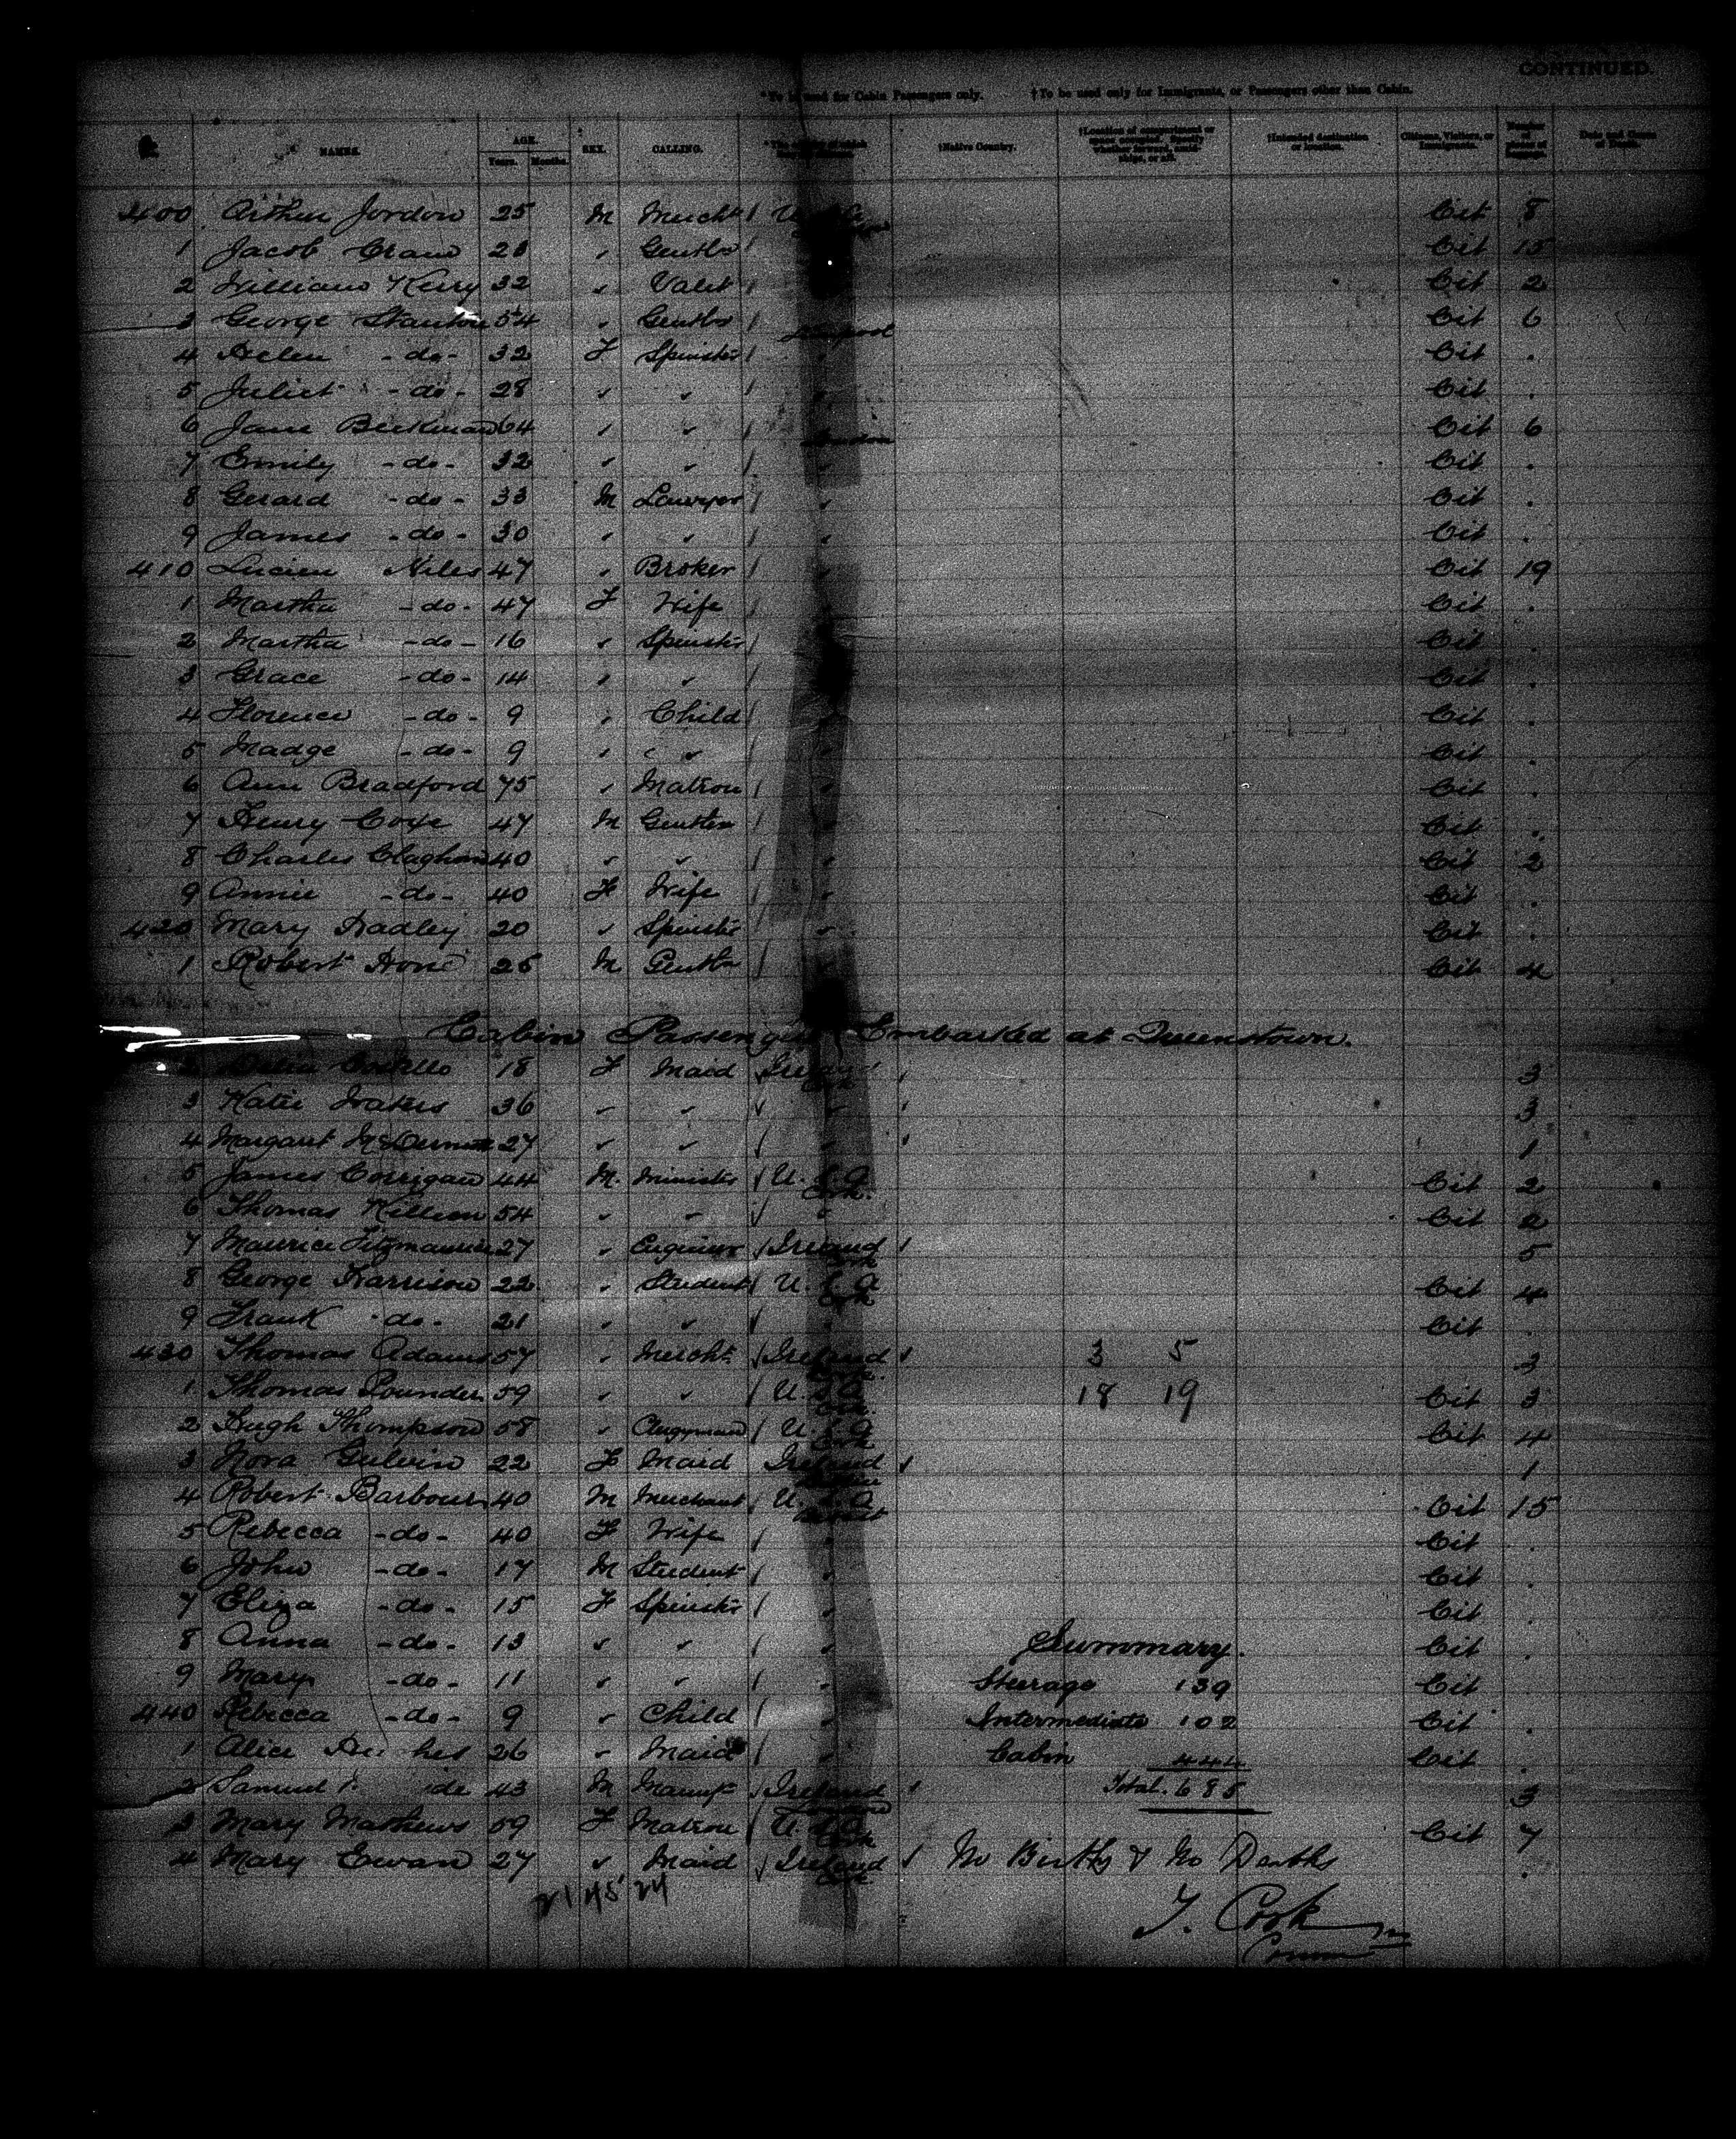 CONTINUED.
*To be used for Cabin Passengers only. †To be used only for Immigrants, or Passengers other than Cabin.
NAMES. AGE. Years. Months. SEX. CALLING. †Native Country. †Location of compartment or †Intended destination or location. Citizens, Visitors, or Immigrants. Number of pieces of Baggage. Date and Cause of Death.
400 Arthur Jordon 25 M Mercht U.S.A Cit 8
1 Jacob 28 " Gentln Cit 15
2 William Kerry 32 " Valet Cit 2
3 George Stanton 54 " Gentln Liverpool Cit 6
4 Helen -do- 32 F Spinster " Cit .
5 Juliet -do- 28 " " " Cit .
6 Jane Beekman 64 " " London Cit 6
7 Emily -do- 32 " " " Cit .
8 Gerard -do- 33 M Lawyer " Cit .
9 James -do- 30 " " " Cit .
410 Lucien Niles 47 " Broker " Cit 19
1 Martha -do- 47 F Wife " Cit .
2 Martha -do- 16 " Spinster Cit .
3 Grace -do- 14 " " Cit .
4 Florence -do- 9 " Child " Cit .
5 Madge -do- 9 " " " Cit .
6 Ann Bradford 75 " Matron " Cit .
7 Henry Coxe 47 M Gentlen " Cit .
8 Charles Claghorn 40 " " " Cit 2
9 Annie -do- 40 F Wife " Cit .
420 Mary Hadley 20 " Spinster " Cit .
1 Robert Hone 25 M Gentln " Cit 4
Cabin Passengers Embarked at Queenstown.
2 Delia Costello 18 F Maid Ireland 3
3 Katie 36 " " " 3
4 Margaret McDermott 27 " " " 1
5 James Corrigan 44 M. Minister U.S.A Cork. Cit 2
6 Thomas Killeen 54 " " " Cit 2
7 Maurice Fitzmaurice 27 " Engineer Ireland Cork 5
8 George Harrison 22 " Student U.S.A Cork Cit 4
9 Frank -do- 21 " " " Cit .
430 Thomas Adams 57 " Mercht Ireland 3 5 3
1 Thomas Pounden 59 " " U.S.A Cork 18 19 Cit 3
2 Hugh Thompson 58 " Clergyman U.S.A Cork Cit 4
3 Nora Galvin 22 F Maid Ireland 1
4 Robert Barbour 40 M Merchant U.S.A Belfast Cit 15
5 Rebecca -do- 40 F Wife " Cit .
6 John -do- 17 M Student " Cit .
7 Eliza -do- 15 F Spinster " Cit .
8 Anna -do- 13 " " " Cit .
9 Mary -do- 11 " " " Cit .
440 Rebecca -do- 9 " Child " Cit .
1 Alice 26 " Maid " Cit .
2 Samuel 43 M Ireland 3
3 Mary Mathews 59 F Matron U.S.A Cork Cit 7
4 Mary Ewan 27 " Maid Ireland Cork .
Summary.
Steerage 139
Intermediate 102
Cabin 444
Total. 685
No Births & No Deaths
21 45 24